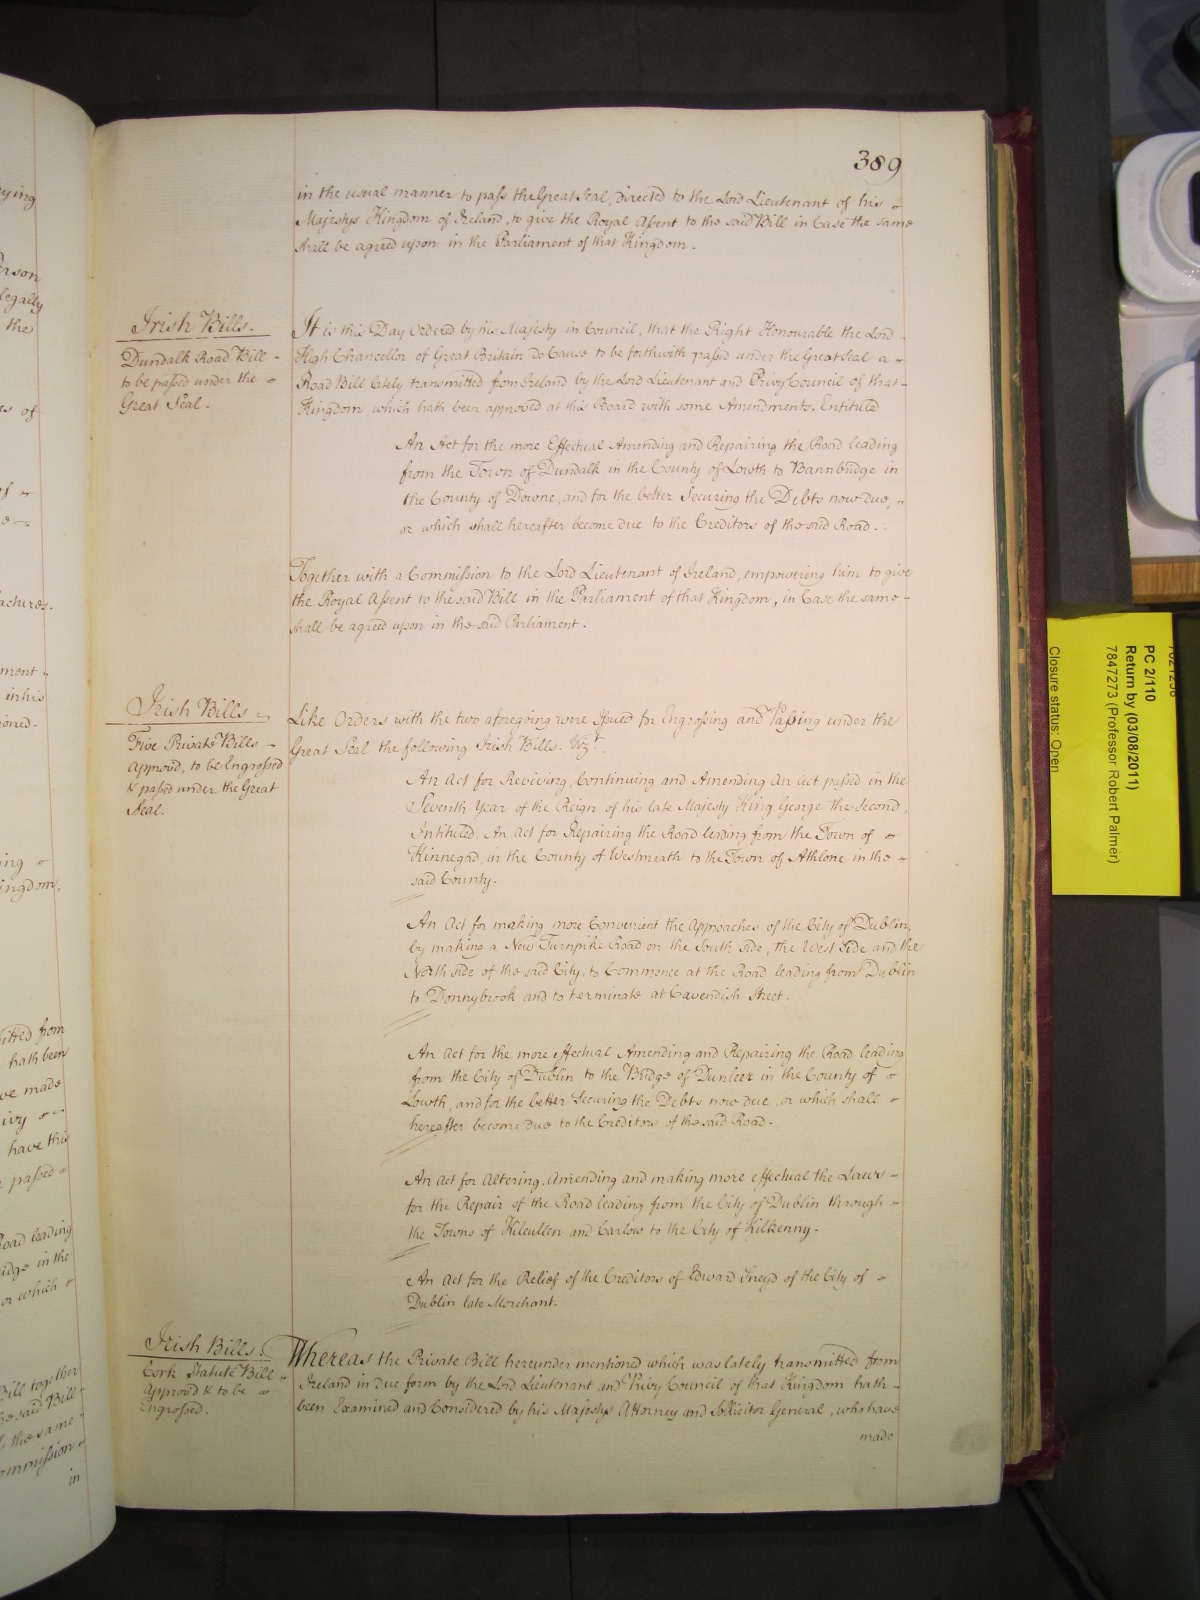 389
in the usual manner to pass the Great Seal, Directed to the Lord Lieutenant of his
Majestys Kingdom of Ireland, to give the Royal Assent to the said Bill in Case the same
shall be agreed upon in the Parliament of that Kingdom.
Irish Bills.
Dundalk Road Bill
to be passed under the
Great Seal.
It is this Day Ordered by his Majesty in Council, that the Right Honourable the Lord
High Chancellor of Great Britain do Cause to be forthwith passed under the Great Seal a
Road Bill lately transmitted from Ireland by the Lord Lieutenant and Privy Council of that
Kingdom, which hath been approved at this Board with some Amendments, Entituled
An Act for the more Effectual Amending and Repairing the Road leading
from the Town of Dundalk in the County of Lowth to Bannbridge in
the County of Downe, and for the better Securing the Debts now due,
or which shall hereafter become due to the Creditors of the said Road.
Together with a Commission to the Lord Lieutenant of Ireland, empowering him to give
the Royal Assent to the said Bill in the Parliament of that Kingdom, in Case the same
shall be agreed upon in the said Parliament.
Irish Bills
Five Private Bills
Approved, to be Engrossed
& passed under the Great
Seal.
Like Orders with the two aforegoing were Issued for Engrossing and Passing under the
Great Seal the following Irish Bills. Vizt.
An Act for Reviving, Continuing and Amending An Act passed in the
Seventh Year of the Reign of his late Majesty King George the Second,
Intituled, An Act for Repairing the Road leading from the Town of
Kinnegad, in the County of Westmeath to the Town of Athlone in the
said County.
An Act for making more Convenient the Approaches of the City of Dublin,
by making a New Turnpike Road on the South Side, the West Side and the
North side of the said City, to Commence at the Road leading from Dublin
to Donnybrook and to terminate at Cavendish Street.
An Act for the more effectual Amending and Repairing the Road leading
from the City of Dublin to the Bridge of Dunleer in the County of
Lowth, and for the better Securing the Debts now due, or which shall
hereafter become due to the Creditors of the said Road.
An Act for Altering, Amending and making more effectual the Laws
for the Repair of the Road leading from the City of Dublin through
the Towns of Kilcullen and Carlow to the City of Kilkenny.
An Act for the Relief of the Creditors of Edward Sneyd of the City of
Dublin late Merchant.
Irish Bills.
Cork Statute Bill
Approv'd & to be
Engrossed.
Whereas the Private Bill hereunder mentioned which was lately transmitted from
Ireland in due form by the Lord Lieutenant and Privy Council of that Kingdom hath
been Examined and Considered by his Majestys Attorney and Sollicitor General, who have
made
PC 2/110
Return by (03/08/2011)
7847273 (Professor Robert Palmer)
Closure status: Open